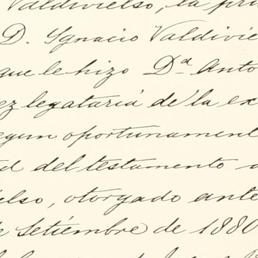 Valdivielso, la pri
D. Ignacio Valdivie
que le hizo Dª Anto
ez legataria de la ex
egun oportunament
d del testamento
elso, otorgado ante
e Setiembre de 1880